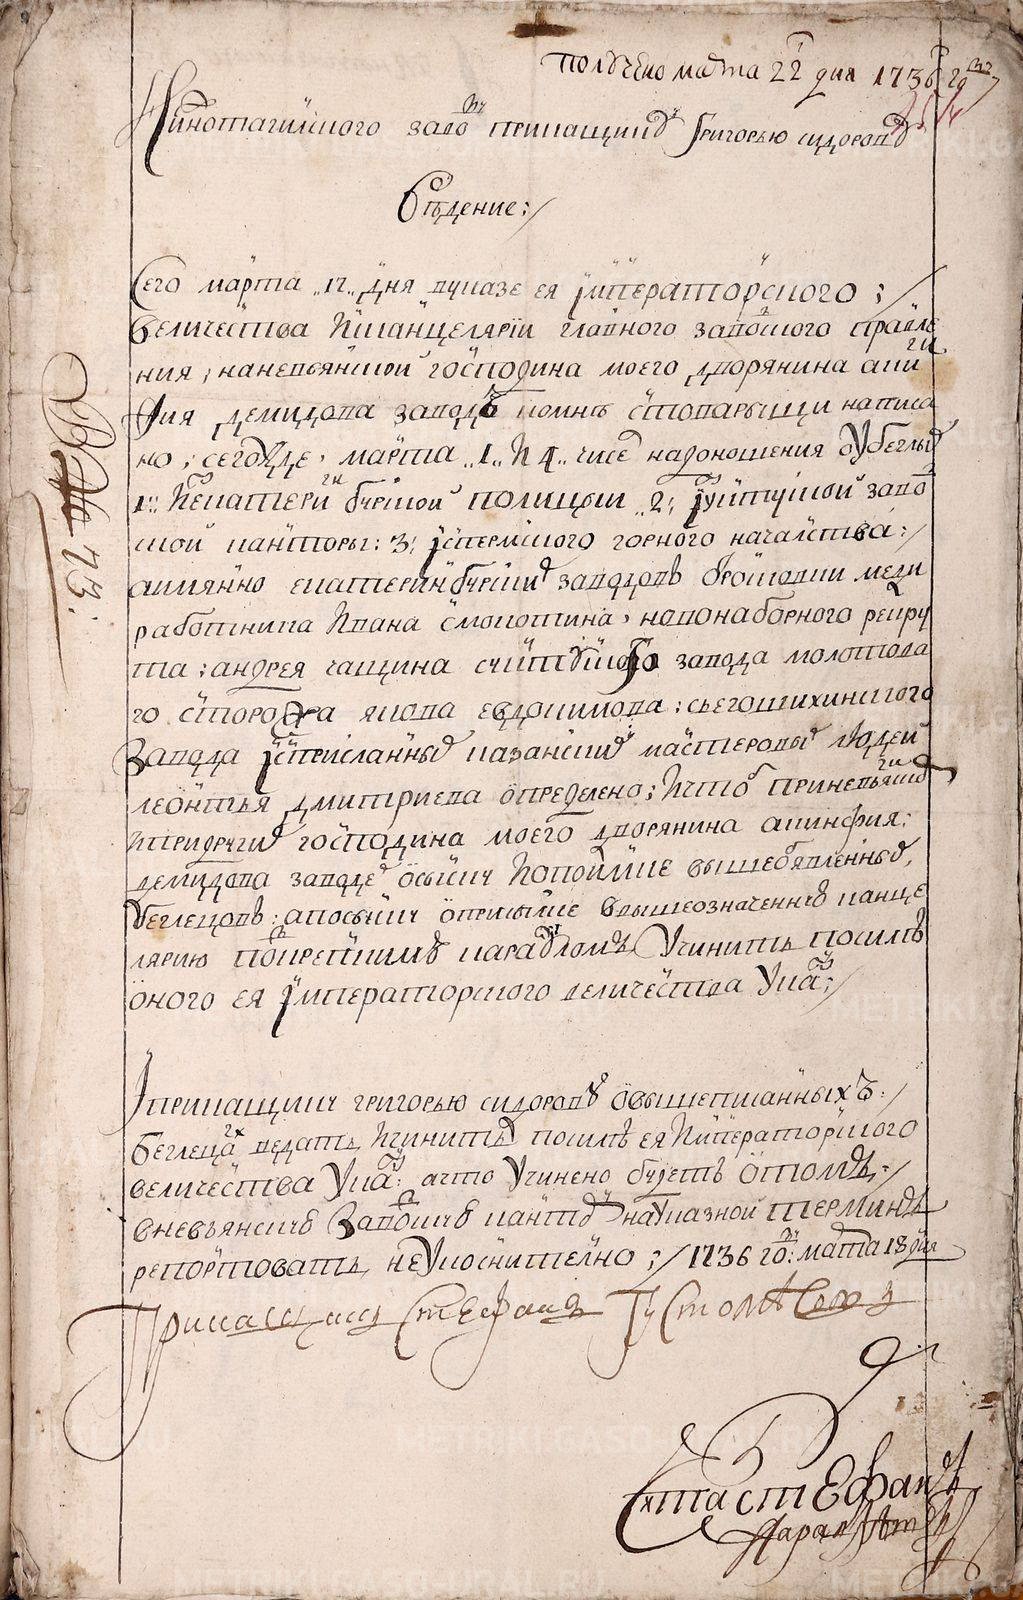 получено марта 22 дня 1736 году
Нижнотагилского заводу прикащику Григорью Сидорову
Ведение:/
Сего марта 17 дня вуказе ея императорского
величества исканцелярии главного заводского правле
ния, наневьянской господина моего дворянина акин
фия демидова завод комне стоварыщи написа
но; сегогоде, марта 1 и 4 чисел надоношения обеглых
1: Екатеринбурской полицыи 2: суктунской заво
ской канторы: 3: испермского горного началства:/
аимянно екатеринбурских заводов брошовки меди
работника ивана смокотина, новонаборного рекру
та: андрея чащина ссуктунского завода молотова
го сторожа якова евдокимова: сьегошихинского
завода исприсланных казанских мастеровых людей
леонтья дмитриева определено; ичтоб приневьянских
ипридругих господина моего дворянина акинфия:
демидова заводех осыску ипоимке вышеобявленных,
беглецов: апосыску оприсылке ввышеозначенную канце
лярию покрепким караулом учинить посиле
оного ея императорского величества указу:/
Iприкащику григорью сидорову овышеписанных:/
беглецах ведать иучинить посиле ея императорского
величества указу: ачто учинено будеть отом:/
вневьянскую заводскую канторy науказной термин
репортовать неукоснително;/ 1736 году: марта 18 дня
Прикащик Стефан
Стефан